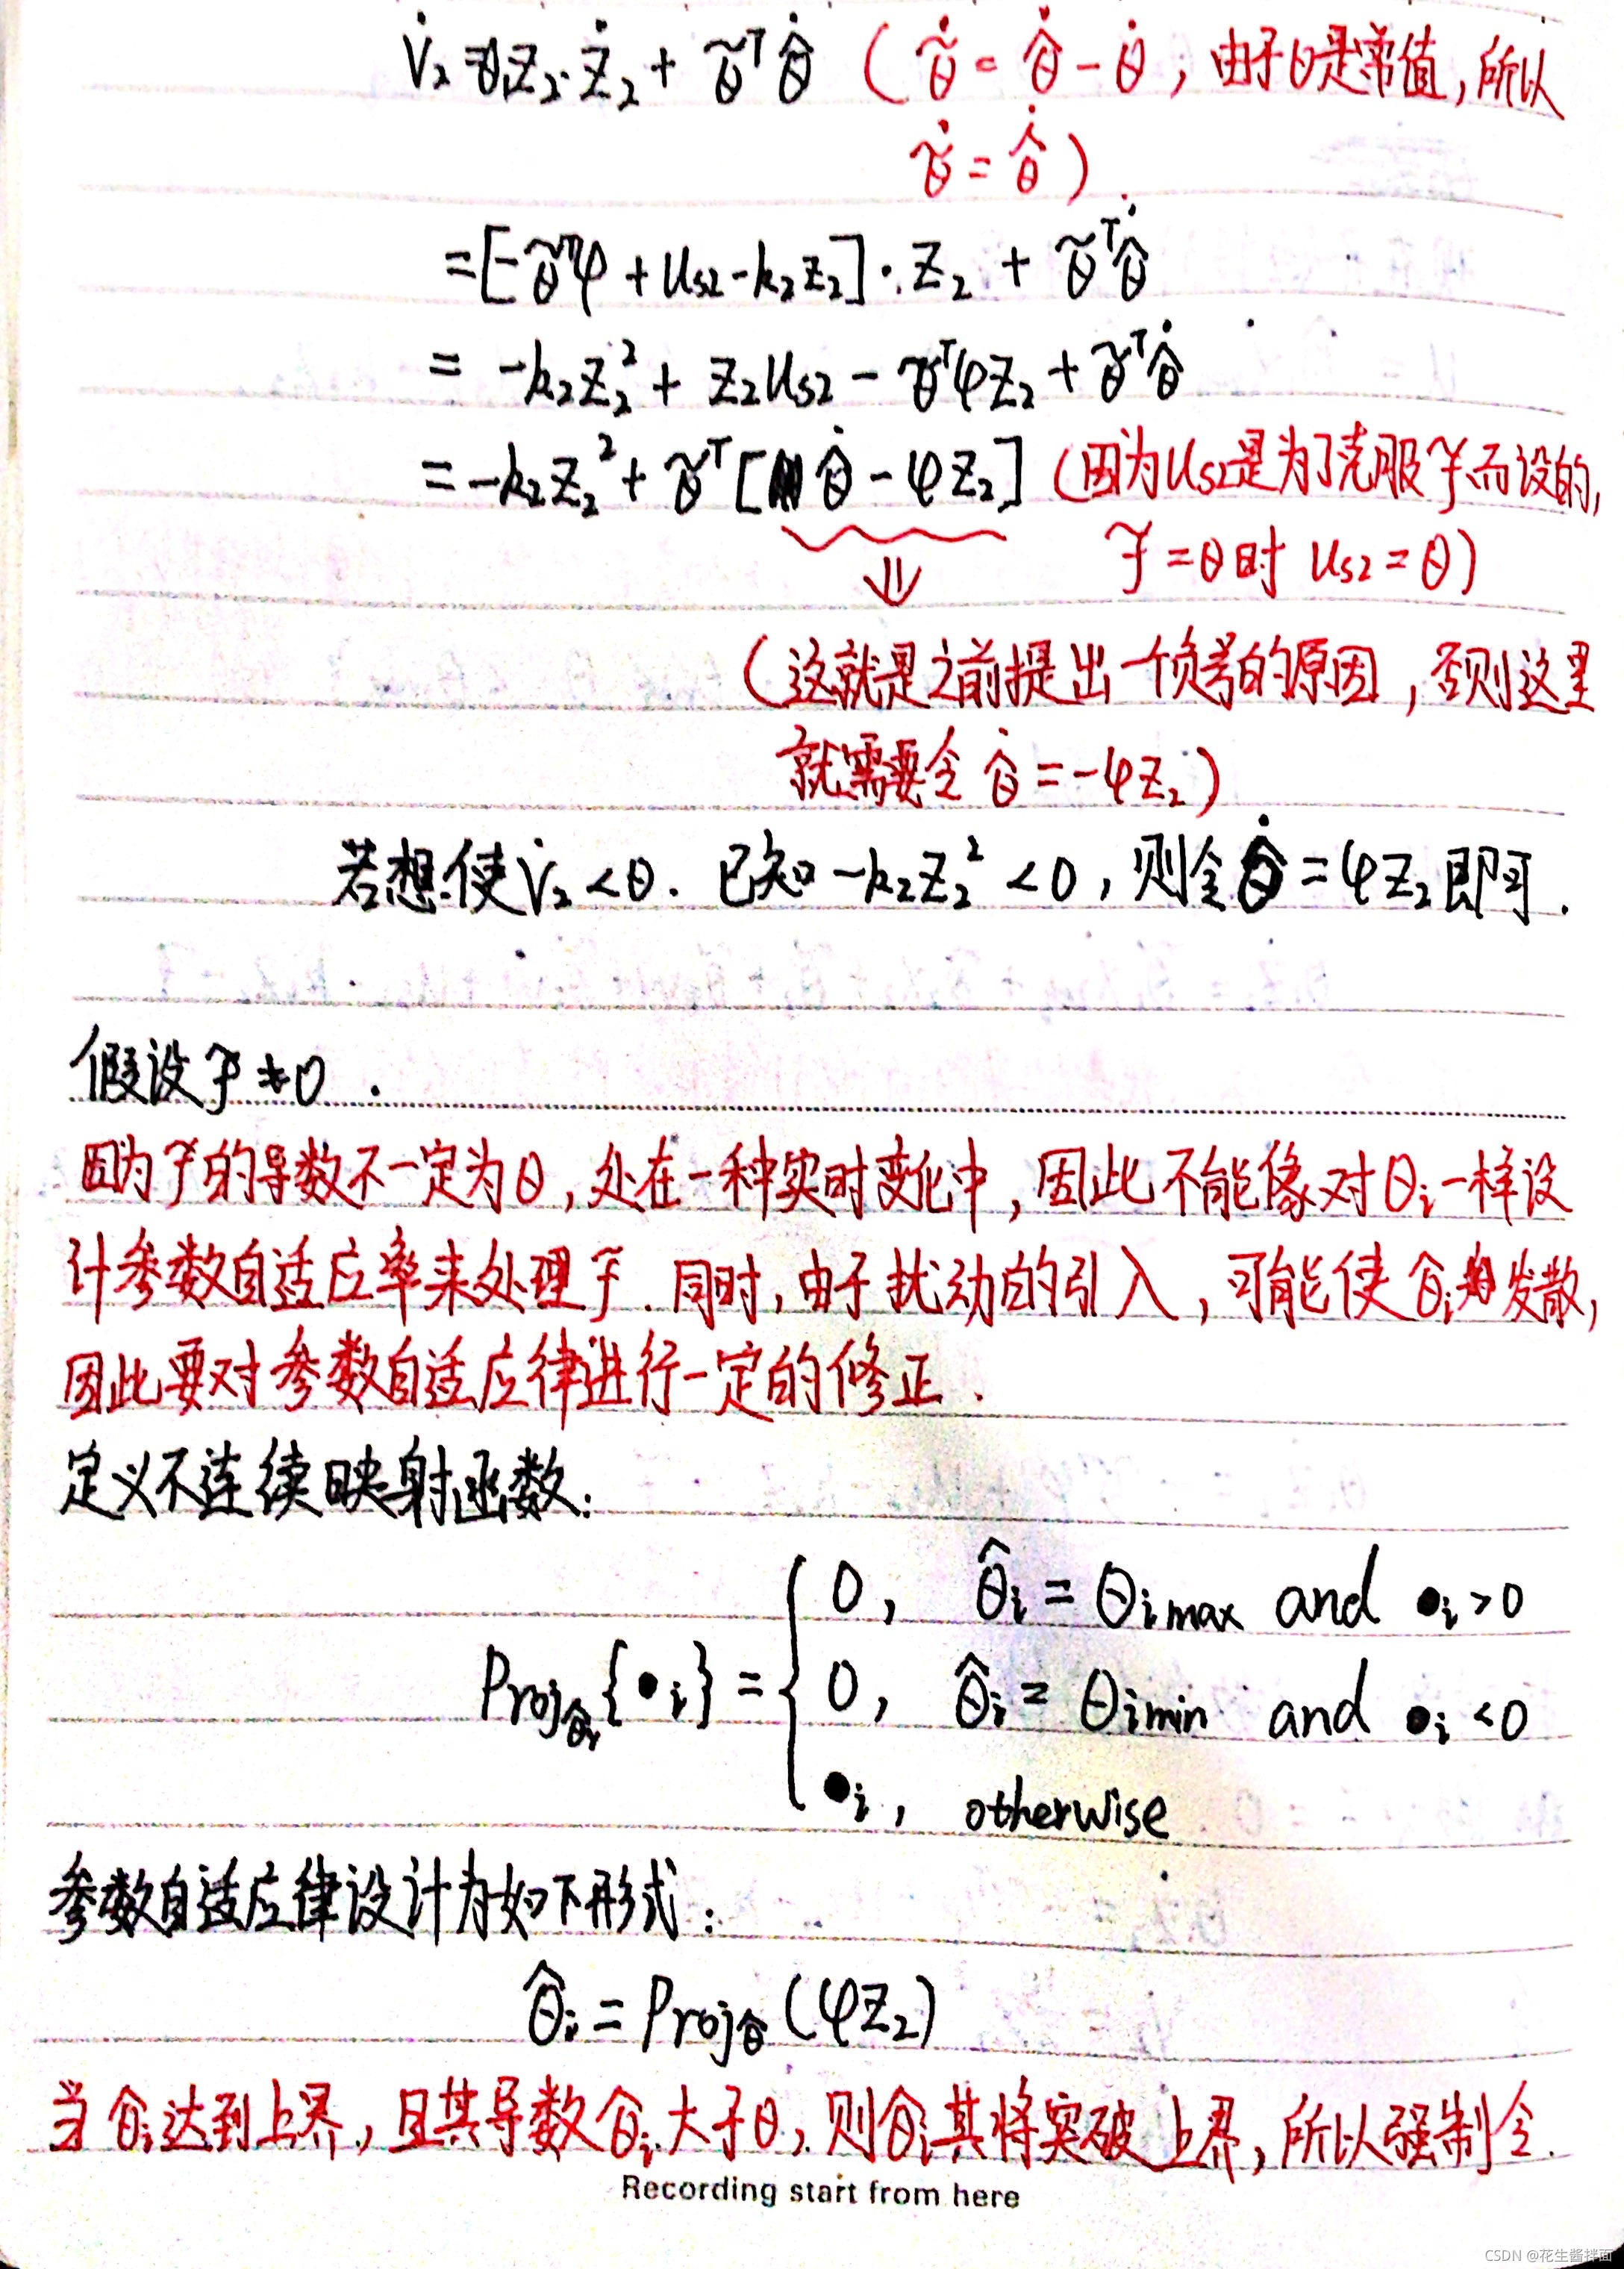 V̇₂ = z₂·ż₂ + θ̃ᵀθ̂̇ (θ̃̇ = θ̂̇ - θ̇, 由于θ是常值, 所以
θ̃̇ = θ̂̇)
= [-θ̃ᵀφ + u_s2 - k₂z₂]·z₂ + θ̃ᵀθ̂̇
= -k₂z₂² + z₂u_s2 - θ̃ᵀφz₂ + θ̃ᵀθ̂̇
= -k₂z₂² + θ̃ᵀ[θ̂̇ - φz₂] (因为u_s2是为了克服f̃而设的,
f̃ = 0时 u_s2 = 0)
⇓
(这就是之前提出一个负号的原因, 否则这里
就需要令 θ̂̇ = -φz₂)
若想使V̇₂ < 0. 已知 -k₂z₂² < 0, 则令θ̂̇ = φz₂即可.
假设f̃ ≠ 0.
因为f̃的导数不一定为0, 处在一种实时变化中, 因此不能像对θᵢ一样设
计参数自适应率来处理f̃. 同时, 由于扰动的引入, 可能使θ̂ᵢ发散,
因此要对参数自适应律进行一定的修正.
定义不连续映射函数:
0, θ̂ᵢ = θᵢmax and •ᵢ>0
Proj_θ̂ᵢ{•ᵢ} = { 0, θ̂ᵢ = θᵢmin and •ᵢ<0
•ᵢ, otherwise
参数自适应律设计为如下形式:
θ̂ᵢ = Proj_θ̂(φz₂)
当θ̂ᵢ达到上界, 且其导数θ̂ᵢ大于0, 则θ̂ᵢ其将突破上界, 所以强制令
Recording start from here
CSDN @花生酱拌面